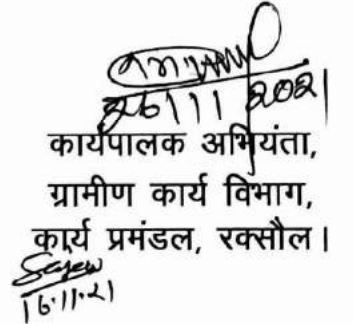 26/11/2021
कार्यपालक अभियंता,
ग्रामीण कार्य विभाग,
कार्य प्रमंडल, रक्सौल।
16.11.21